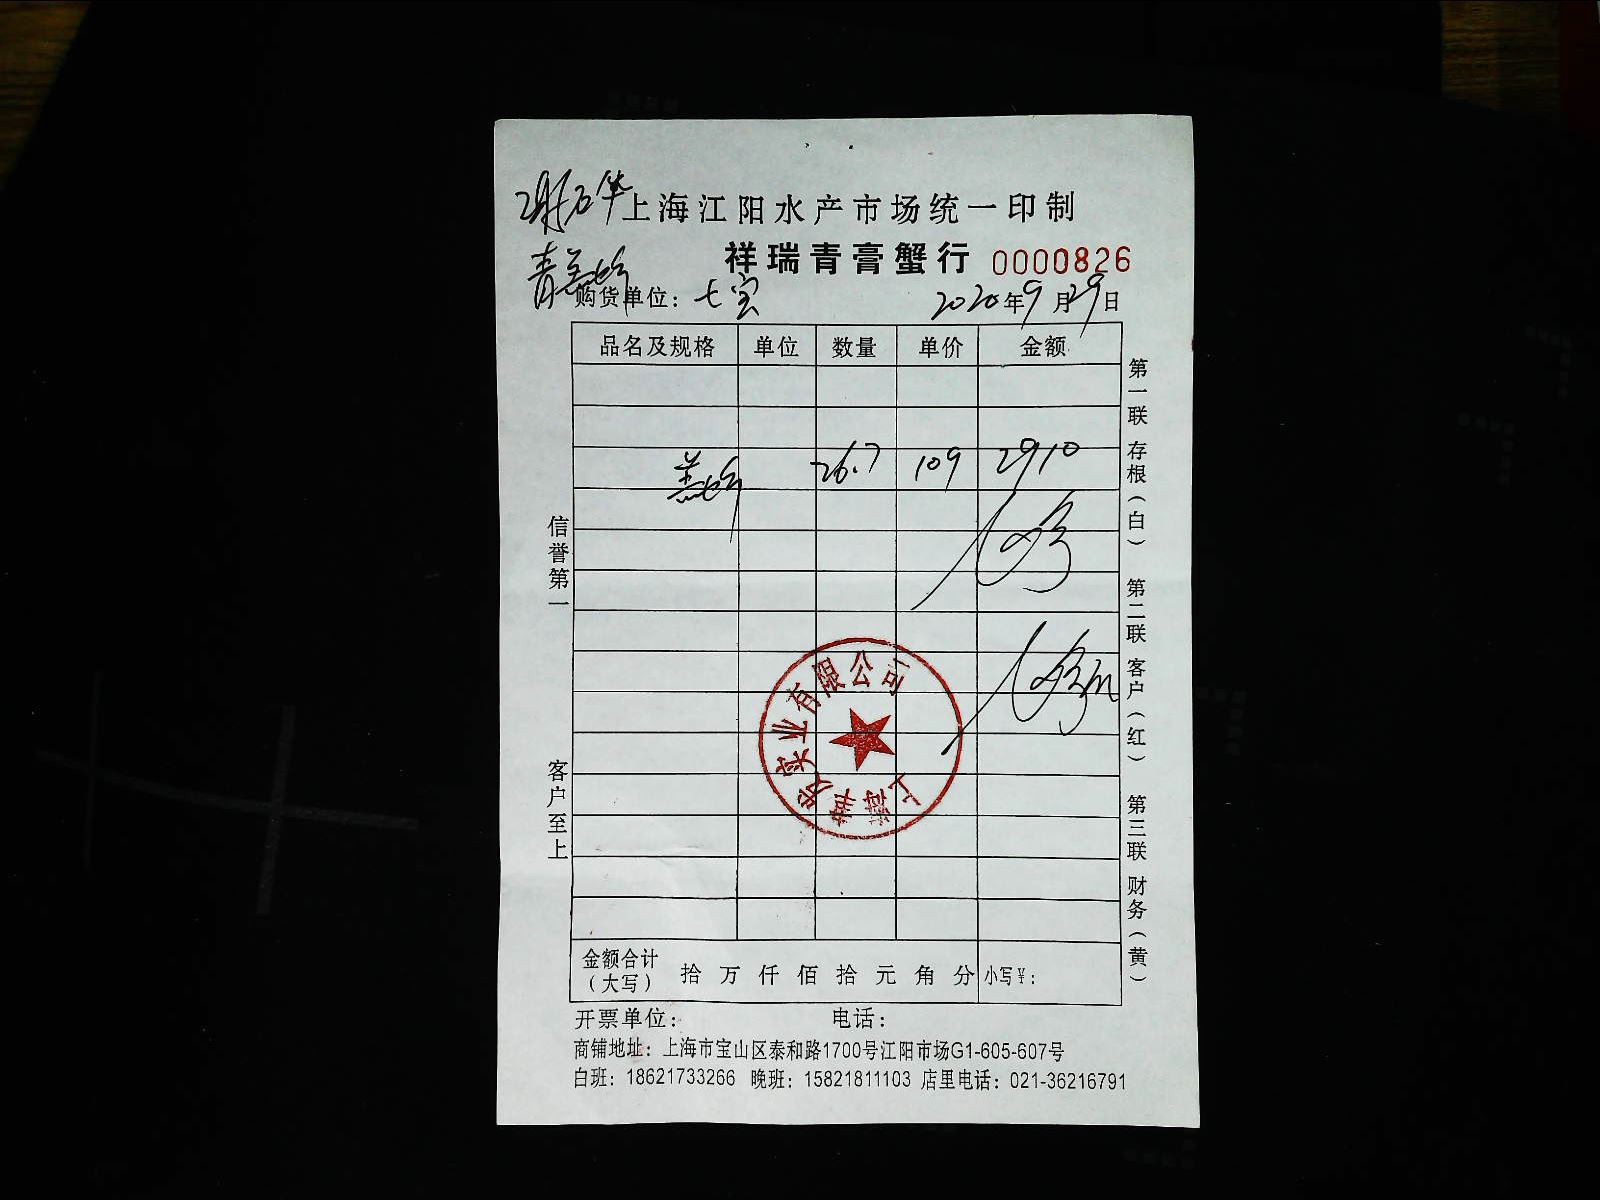 上海江阳水产市场统一印制
祥瑞青膏蟹行 0000826
购货单位：七宝 2020年9月29日
品名及规格 单位 数量 单价 金额
26.7 109 2910
信誉第一
客户至上
第一联 存根（白） 第二联 客户（红） 第三联 财务（黄）
上海苇发实业有限公司
金额合计（大写） 拾 万 仟 佰 拾 元 角 分 小写￥：
开票单位： 电话：
商铺地址：上海市宝山区泰和路1700号江阳市场G1-605-607号
白班：18621733266 晚班：15821811103 店里电话：021-36216791